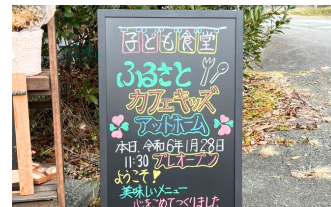 子ども食堂
ふるさと
カフェキッズ
アットホーム
本日、令和6年1月28日
11:30 プレオープン
ようこそ!
美味しいメニュー
心をこめてつくりました